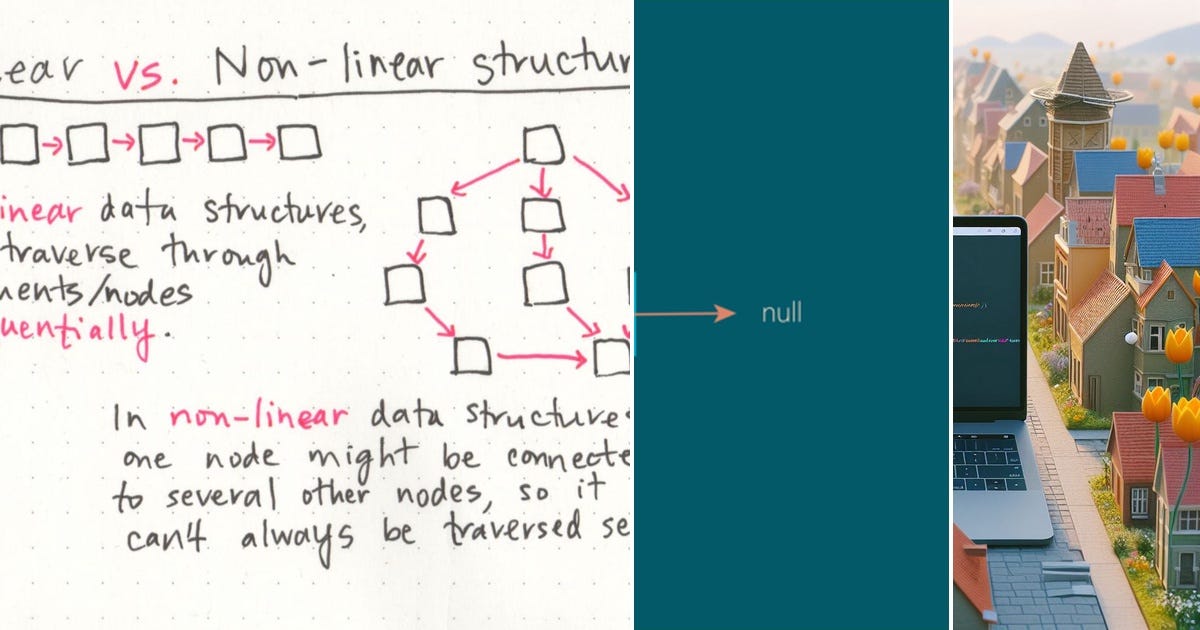 ear vs. Non-linear structur
inear data structures,
traverse through
ments/nodes
uentially.
In non-linear data structure
one node might be connecte
to several other nodes, so it
can't always be traversed se
null